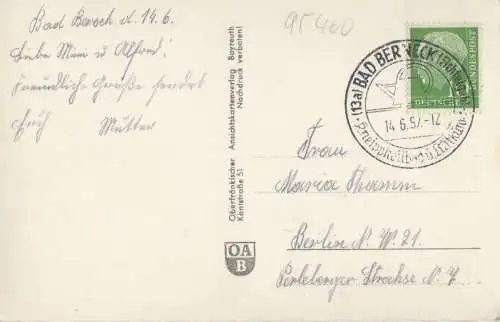 Bad Berneck d. 14.6.
Liebe Mimi u. Alfred!
Freundliche Grüße sendet
Euch Mutter
95400
Oberfränkischer Ansichtskartenverlag Bayreuth
Kantstraße 51 Nachdruck verboten!
OA
B
(13a) BAD BERNECK (Fichtelgeb.)
14.6.57.-12
DEUTSCHE
BUNDESPOST
Frau
Maria Thamm
Berlin N. W. 21.
Perleberger Strasse N. 7